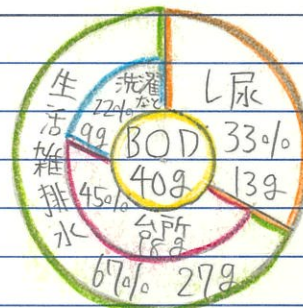 BOD
40g
し尿
33%
13g
生活雑排水
67% 27g
洗濯
など
22%
9g
台所
18g
45%